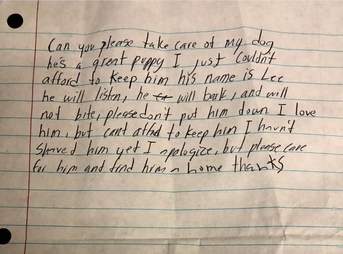 Can you please take care of my dog
he's a great peppy I just couldn't
afford to keep him his name is Lee
he will listen, he will bark, and will
not bite, please don't put him down I love
him, but cant afford to keep him I havn't
shaved him yet I apologize, but please care
for him and find him a home thanks